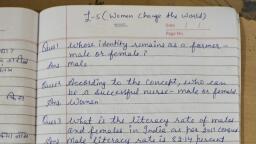 L-5 (Women Change the World)
Date
Page No.
Ques1 Whose identity remains as a farmer-
male or female?
Ans Male
Ques2 According to the concept, who can
be a successful nurse- male or female
Ans Women
Ques3 What is the literacy rate of males
and females in India as per 2011 census
Ans Male literacy percent is 82.14 percent